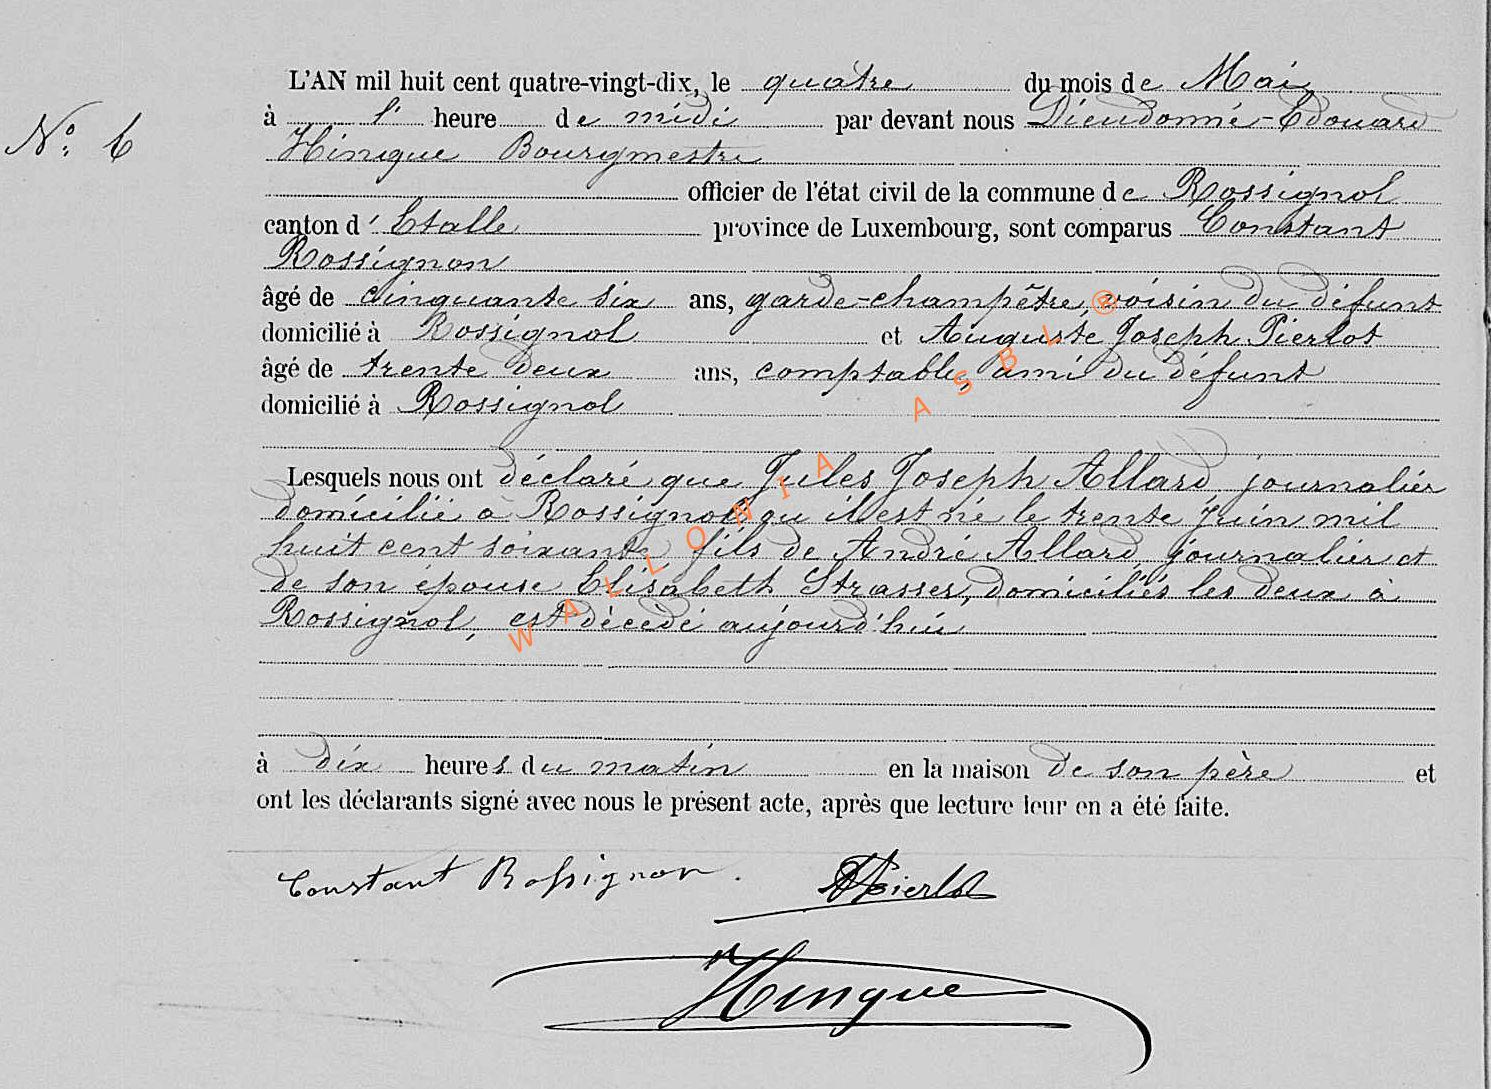 L'AN mil huit cent quatre-vingt-dix, le quatre du mois de Mai
à l' heure de midi par devant nous Dieudonné-Edouard
N°. 6
Hinque Bourgmestre
officier de l'état civil de la commune de Rossignol
canton d' Etalle province de Luxembourg, sont comparus Constant
Rossignon
âgé de cinquante six ans, garde-champêtre, voisin du défunt
domicilié à Rossignol et Auguste Joseph Pierlot
âgé de trente deux ans, comptable, ami du défunt
domicilié à Rossignol
Lesquels nous ont déclaré que Jules Joseph Allard journalier
domicilié à Rossignol où il est né le trente Juin mil
huit cent soixante fils de André Allard journalier et
de son épouse Elisabeth Strasser, domiciliés les deux à
Rossignol, est décédé aujourd'hui
à dix heures du matin en la maison de son père et
ont les déclarants signé avec nous le présent acte, après que lecture leur en a été faite.
Constant Rossignon. APierlot
Hinque
WALLONIA ASBL ®